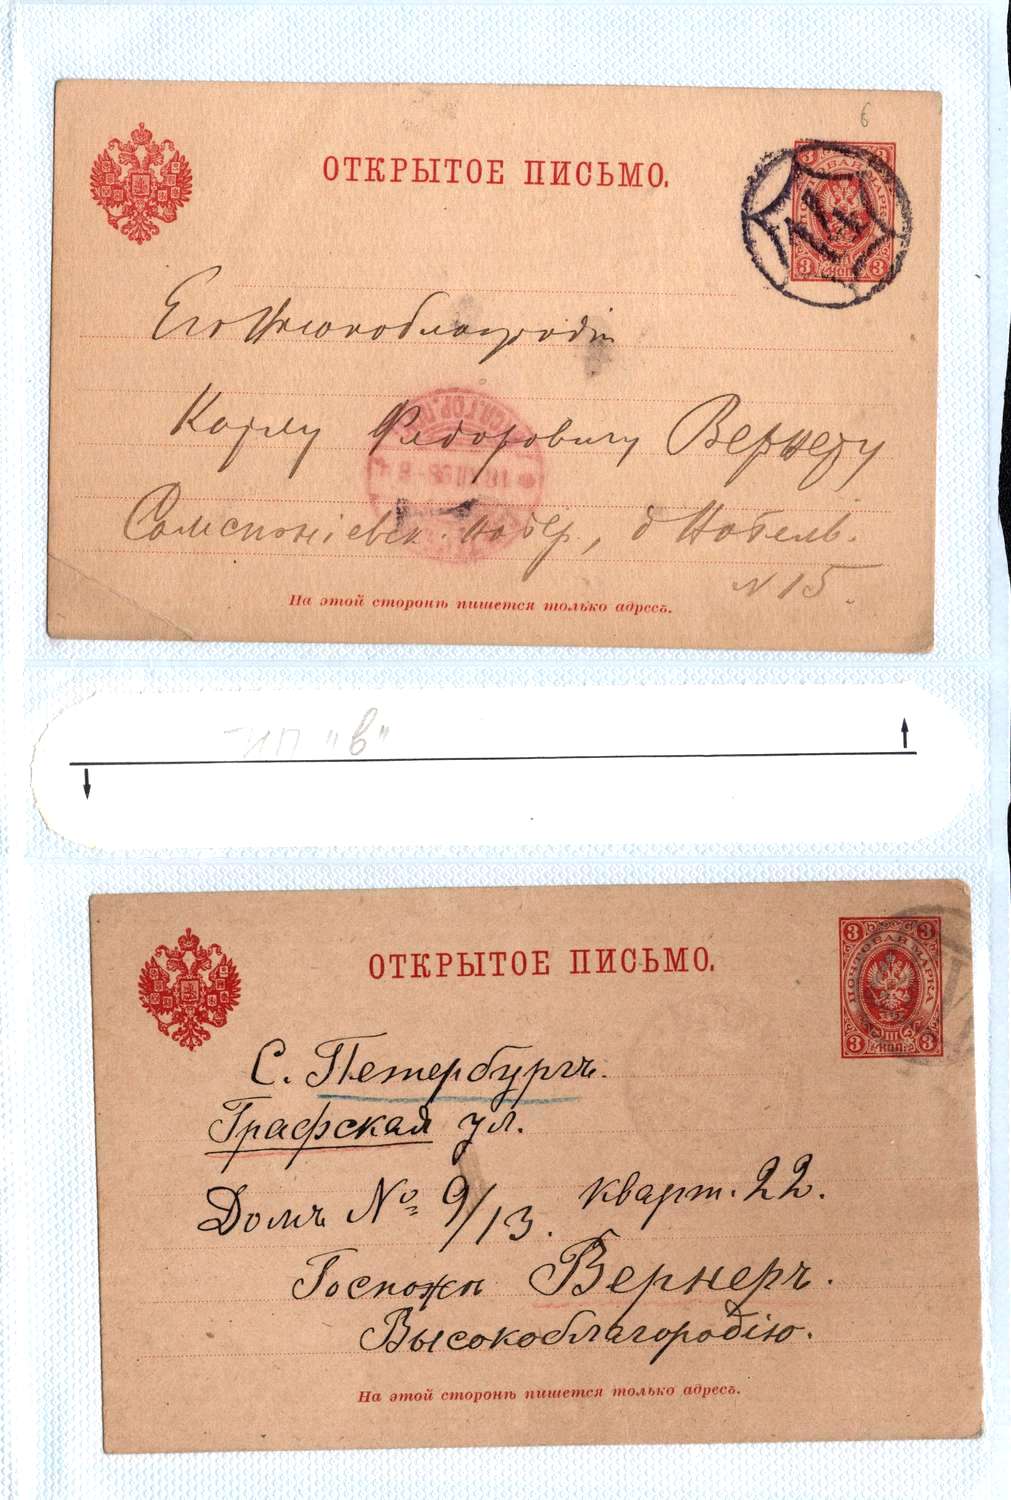 6
ОТКРЫТОЕ ПИСЬМО.
3 3
ПОЧТОВАЯ МАРКА
14
3 КОП. 3
Его Высокоблагородію
Карлу Федоровичу Вернеру
Сампсоніевск. наб., д Нобель.
N 15.
На этой сторонѣ пишется только адресъ.
ТИП "в"
ОТКРЫТОЕ ПИСЬМО.
3 3
ПОЧТОВАЯ МАРКА
3 КОП. 3
С. Петербургъ.
Графская ул.
Домъ № 9/13. кварт. 22.
Госпожѣ Вернеръ.
Высокоблагородію.
На этой сторонѣ пишется только адресъ.